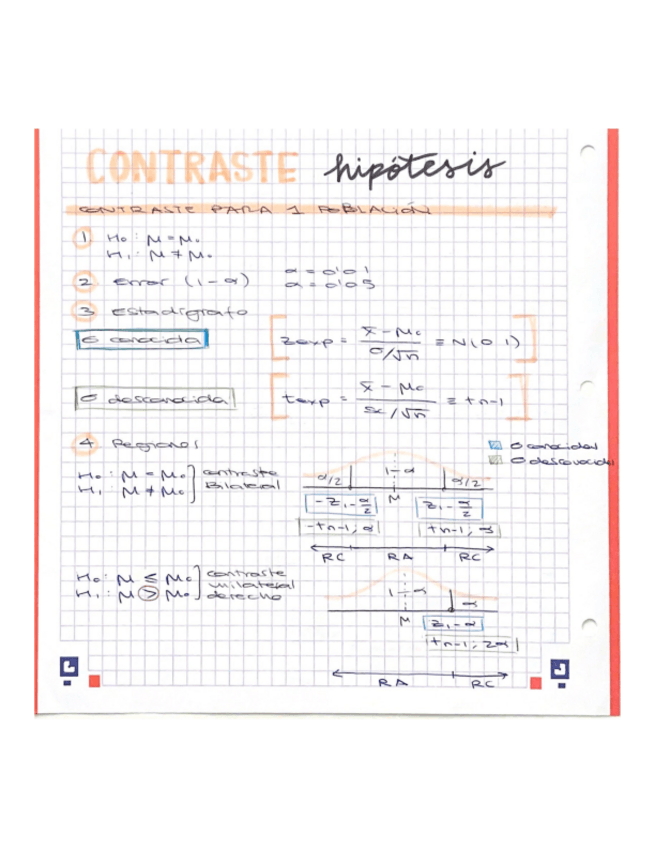 CONTRASTE hipótesis
CONTRASTE PARA 1 POBLACIÓN
1 H₀ : μ = μ₀
H₁ : μ ≠ μ₀
2 error (1 - α) α = 0'01
α = 0'05
3 Estadígrafo
σ conocida Zexp = x̄ - μ₀ / σ/√n ≡ N(0 1)
σ desconocida texp = x̄ - μ₀ / sx/√n ≡ tn-1
4 Regiones
σ conocida
σ desconocida
H₀ : μ = μ₀ contraste
H₁ : μ ≠ μ₀ Bilateral
α/2 1-α α/2
-Z₁-α/2 μ Z₁-α/2
-tn-1; α tn-1; α
RC RA RC
H₀ : μ ≤ μ₀ contraste
unilateral
H₁ : μ > μ₀ derecho
1-α α
μ Z₁-α
tn-1; 2α
RA RC